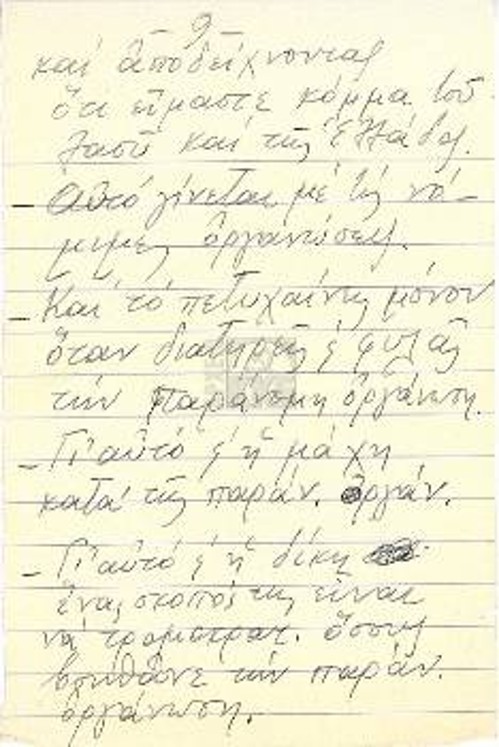 9
καί ἀποδείχνοντας
ὅτι εἴμαστε κόμμα τοῦ
λαοῦ καί τῆς Ἑλλάδας.
– Αὐτό γίνεται μέ τίς νό-
μιμες ὀργανώσεις.
– Καί τό πετυχαίνεις μόνον
ὅταν διατηρεῖς ἤ φυλᾶς
τήν παράνομη ὀργάνωση.
– Γι' αὐτό ἤ ἡ μάχη
κατά τῆς παράν. ὀργάν.
– Γι' αὐτό ἤ ἡ δίκη
ἕνας σκοπός της εἶναι
νά τρομοκρατ. ὅσους
βοηθᾶνε τήν παράν.
ὀργάνωση.